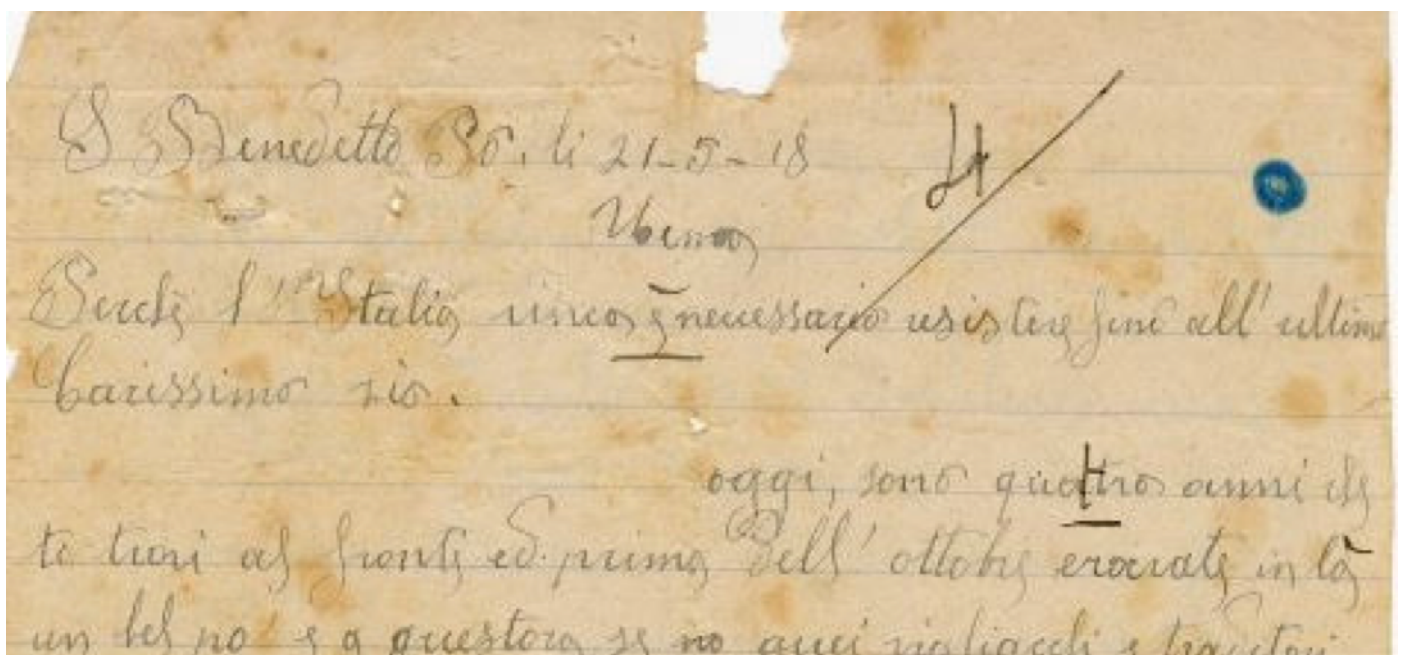 S Benedetto Po. li 21-5-18
Tema
Perchè l'Italia vinca è necessario resistere fino all'ultimo
Carissimo zio.
oggi, sono quattro anni che
te trovi al fronte ed prima dell'ottobre eravate in là
un bel po' e a quest'ora se no quei vigliacchi e traditori